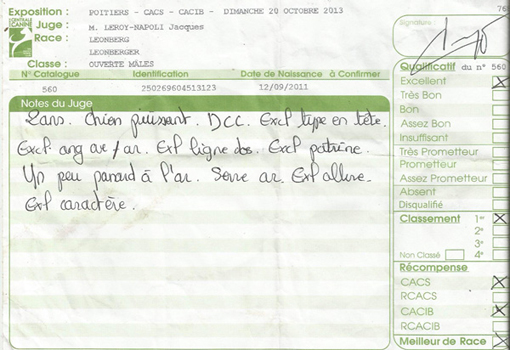 CENTRALE
CANINE
Exposition : POITIERS - CACS - CACIB - DIMANCHE 20 OCTOBRE 2013
Juge : M. LEROY-NAPOLI Jacques
Race : LEONBERG
LEONBERGER
Classe : OUVERTE MÂLES
N° Catalogue Identification Date de Naissance à Confirmer
560 250269604513123 12/09/2011
Notes du Juge
2 ans. Chien puissant. DCC. Excl type en tête.
Excl ang av/ar. Exl ligne dos. Excl poitrine.
Un peu panard à l'ar. Serre ar. Exl allure.
Exl caractère.
76
Signature :
Qualificatif du n° 560
Excellent X
Très Bon
Bon
Assez Bon
Insuffisant
Très Prometteur
Prometteur
Assez Prometteur
Absent
Disqualifié
Classement 1er X
2e
3e
Non Classé 4e
Récompense
CACS X
RCACS
CACIB X
RCACIB
Meilleur de Race X